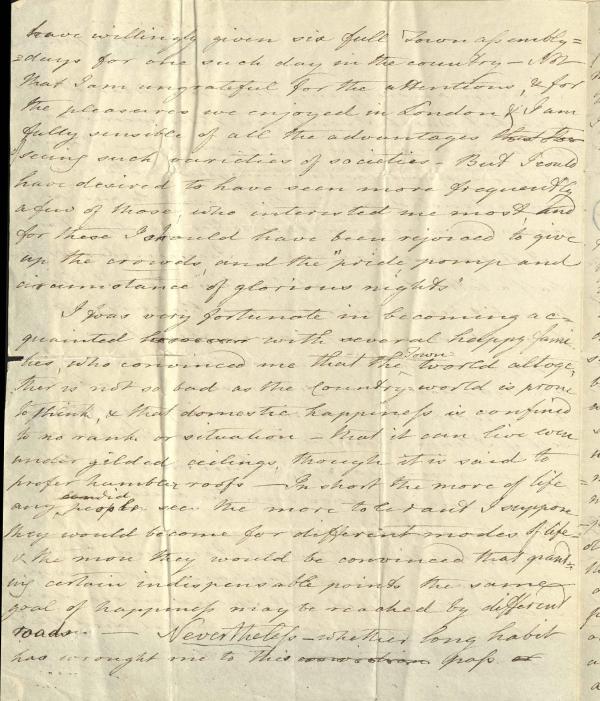 have willingly given six full Town assembly=
=days for one such day in the country – Not
that I am ungrateful for the attentions, & for
the pleasures we enjoyed in London & I am
fully sensible of all the advantages that
seeing such varieties of societies – But I could
have desired to have seen more frequently
a few of those, who interested me most, and
for these I should have been rejoiced to give
up the crowds and the "pride pomp and
circumstance of glorious nights"
I was very fortunate in becoming ac-
quainted with several happy fami
lies, who convinced me that the Town world altoge
ther is not so bad as the Country world is prone
to think, & that domestic happiness is confined
to no rank or situation – that it can live even
under gilded ceilings, though it is said to
prefer humbler roofs – In short the more of life
any candid people see the more tolerant I suppose
they would become for different modes of life –
& the more they would be convinced that grant=
ing certain indispensable points the same
goal of happiness may be reached by different
roads. — Nevertheless – whether long habit
has wrought me to this pass